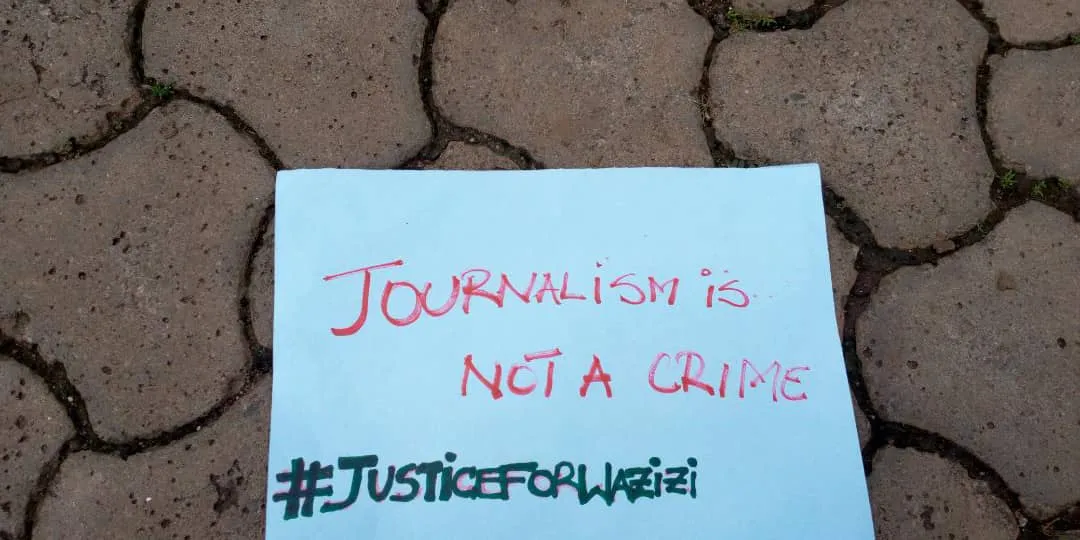 JOURNALiSM iS
NOT A CRIME
#JUSTiCEFORWAZiZi